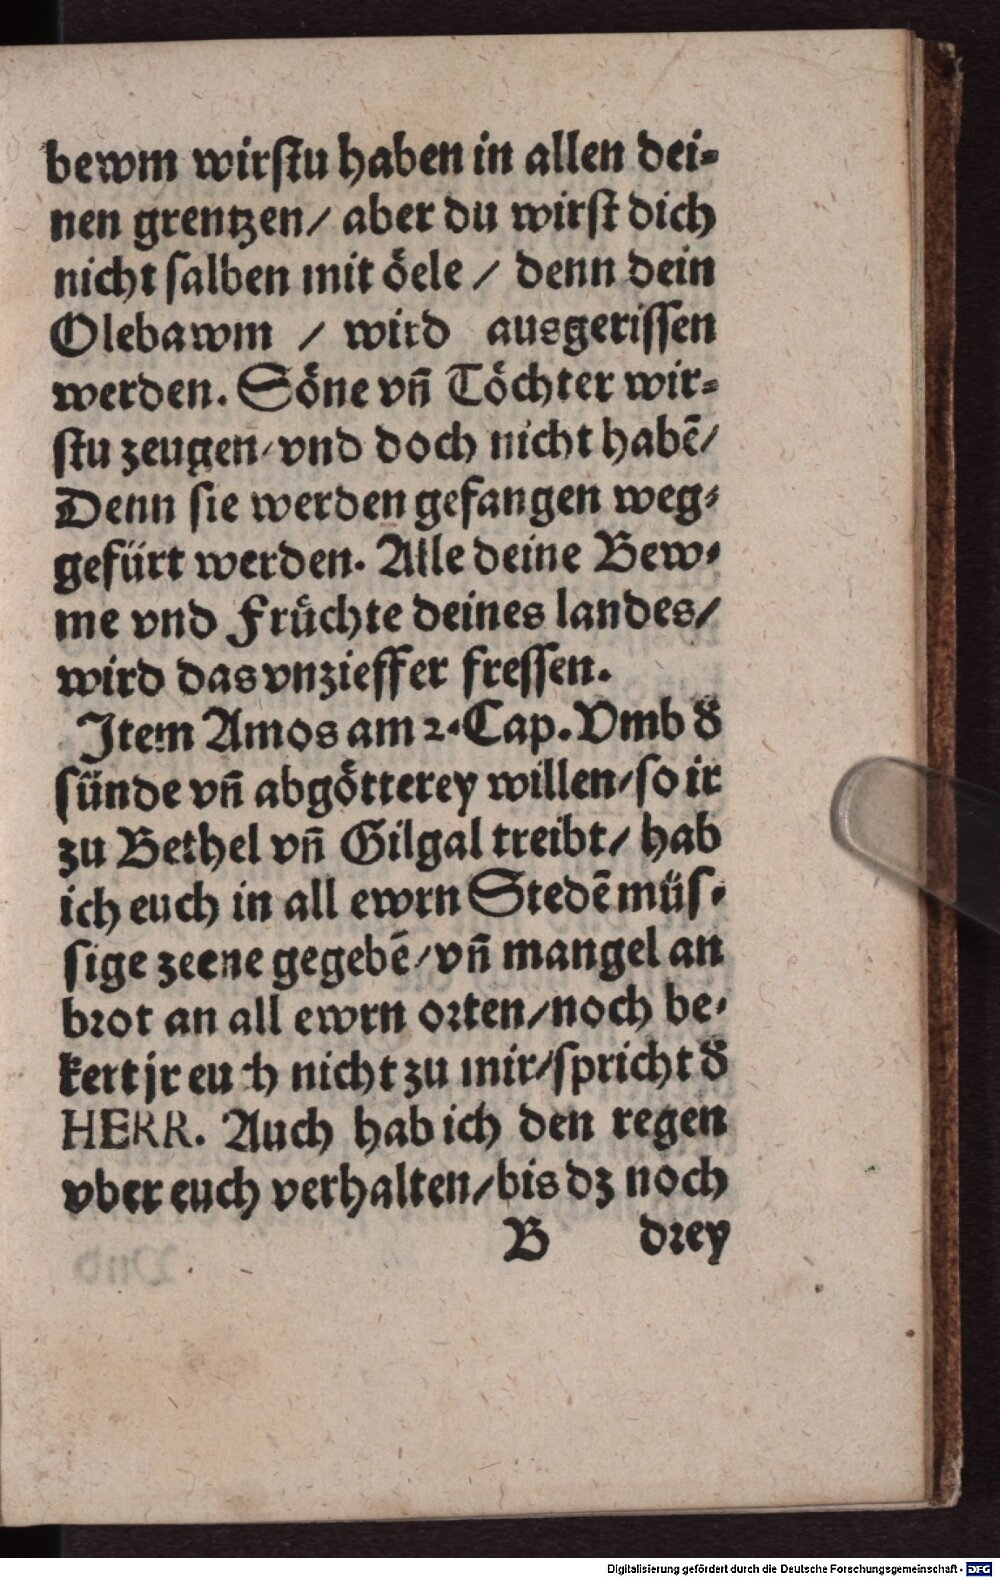 bewm wirſtu haben in allen dei⸗
nen grentzen/ aber du wirſt dich
nicht ſalben mit oͤele / denn dein
Olebawm / wird ausgeriſſen
werden. Soͤne vñ Toͤchter wir⸗
ſtu zeugen/vnd doch nicht habē/
Denn ſie werden gefangen weg⸗
gefuͤrt werden. Alle deine Bew⸗
me vnd Fruͤchte deines landes/
wird das vnzieffer freſſen.
Item Amos am 2. Cap. Vmb ð
ſuͤnde vñ abgoͤtterey willen/ſo ir
zu Bethel vñ Gilgal treibt/ hab
ich euch in all ewrn Stedē muͤſ⸗
ſige zeene gegebē/vñ mangel an
brot an all ewrn orten/noch be⸗
kert jr euch nicht zu mir/ſpricht ð
HERR. Auch hab ich den regen
vber euch verhalten/bis dz noch
B drey
Digitalisierung gefördert durch die Deutsche Forschungsgemeinschaft - DFG